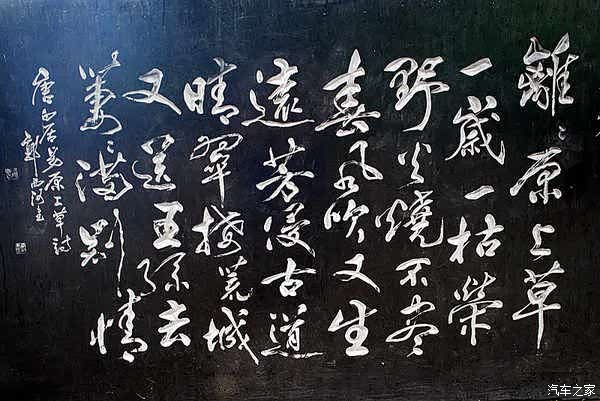 離〻原上草
一歲一枯榮
野火燒不盡
春風吹又生
遠芳侵古道
晴翠接荒城
又送王孫去
萋〻滿別情
唐白居易原上草詩
郭西河
汽车之家